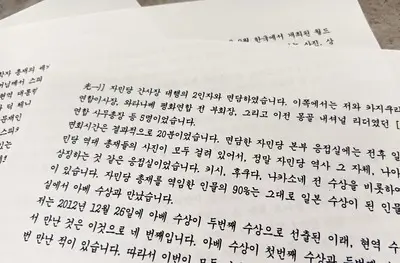 한국에서 개최된 월드
사진, 상
光一)] 자민당 간사장 대행의 2인자와 면담하였습니다. 이쪽에서는 저와 카지쿠리
연합이사장, 와타나베 평화연합 전 부회장, 그리고 이전 몽골 내셔널 리더였던 [
연합 사무총장 등 5명이었습니다.
면회시간은 결과적으로 20분이었습니다. 면담한 자민당 본부 응접실에는 전후 일
민당 역대 총재들의 사진이 모두 걸려 있어서, 정말 자민당 역사 그 자체, 나아
상징하는 것 같은 응접실이었습니다. 키시, 후쿠다, 나카소네 전 수상을 비롯하여
이 있습니다. 자민당 총재를 역임한 인물의 90%는 그대로 일본 수상이 된 인물
실에서 아베 수상과 만났습니다.
저는 2012년 12월 26일에 아베 수상이 두번째 수상으로 선출된 이래, 현역 수
서 만난 것은 이것으로 네 번째입니다. 아베 수상이 첫번째 수상과 두번
번 만난 적이 있습니다. 따라서 이번이 모두
학자 총재의
에서 스피
현역 대통령
딕 체니
문재인
스피
는